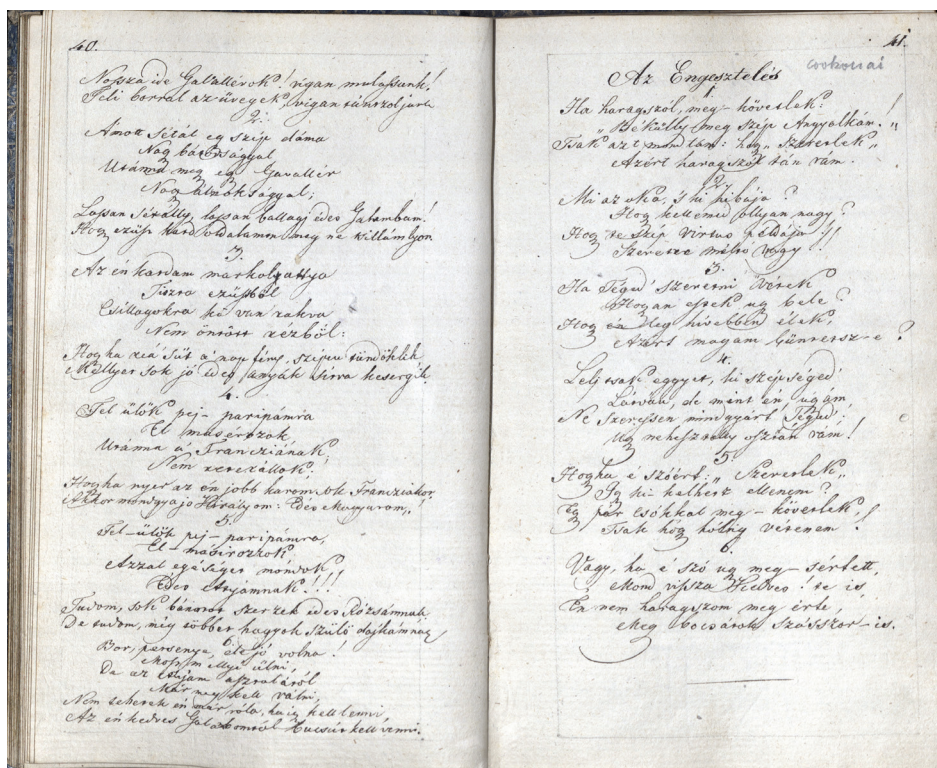 40.
Nosza ide Gavallérok! vigan mulassunk!
Teli borral az üvegek, vigan
2.
Amott sétál egy szép dáma
Nagy bátorsággal
Utánna meg egy Gavallér
Nagy álnoksággal;
Lassan sétálly, lassan ballagj édes Galambom!
Hogy ezüst kard oldalamon, meg ne villámlyon
3.
Az én kardam markolattya
Tiszta ezüstből
Csillagokra ki van rakva
Nem öntött rézből:
Hogyha reá süt a nap fény, szépen tündöklik
Mellyet sok jó édes anyák sirva kesergik.
4.
Fel ülök pej-paripámra
El masérozok
Utánna a Francziának;
Nem rezzállok.
Hogyha nyer az én jobb karom sok Francziákot,
Akkor mondgya jó Királyom: Edes Magyarom,,
5.
Fel-ülök pej-paripámra,
El-masirozok
Azzal egéséget mondok
Edes Atyámnak!!!
Tudom, sok bánatot szerzek édes Rózsámnak
De tudom, még többet hagyok szülö dajkámnak
6.
Bor, persenye, be jó volna!
Mellyi ülni,
De az Atyám asztaláról
Már meg kell válni,
Nem tehetek én már róla, ha ig kell lenni,
Az én kedves Galambomtól bucsut kell venni.
41.
csokonai
Az Engesztelés
1.
Ha haragszol, meg-követlek:
"Békülly meg szép Angyalkám!"
Tsak azt mondtam: hogy „Szeretlek„
Azért haragszol tán rám.
2.
Mi az oka, 's ki hibája?
Hogy kellemed ollyan nagy?
Hogy te szép Virtus példája!!
Szeretre méltó vagy!
3.
Ha Tégod' szeretni vétek
Hogyan essek ug bele?
Hogy én leg hívebben élek,
Azért magam büntetsz-e?
4.
Lelj tsak eggyet, ki szépséged'
Látván, de mint én ugám
Ne szeressen mindgyárt Tégod';
Ug nehesztelly osztán rám!
5.
Hogyha é szóért: „Szeretlek„
Ig ki-kelhetsz ellenem?
Egy pár tsókkal meg-követlek,!
Tsak hog hólnig vélenem!
6.
Vagy, ha é szó ug meg-sértett,
Mond vissza Kedves! te is
Én nem haragszom meg érte,
Meg bocsátok százszor-is.